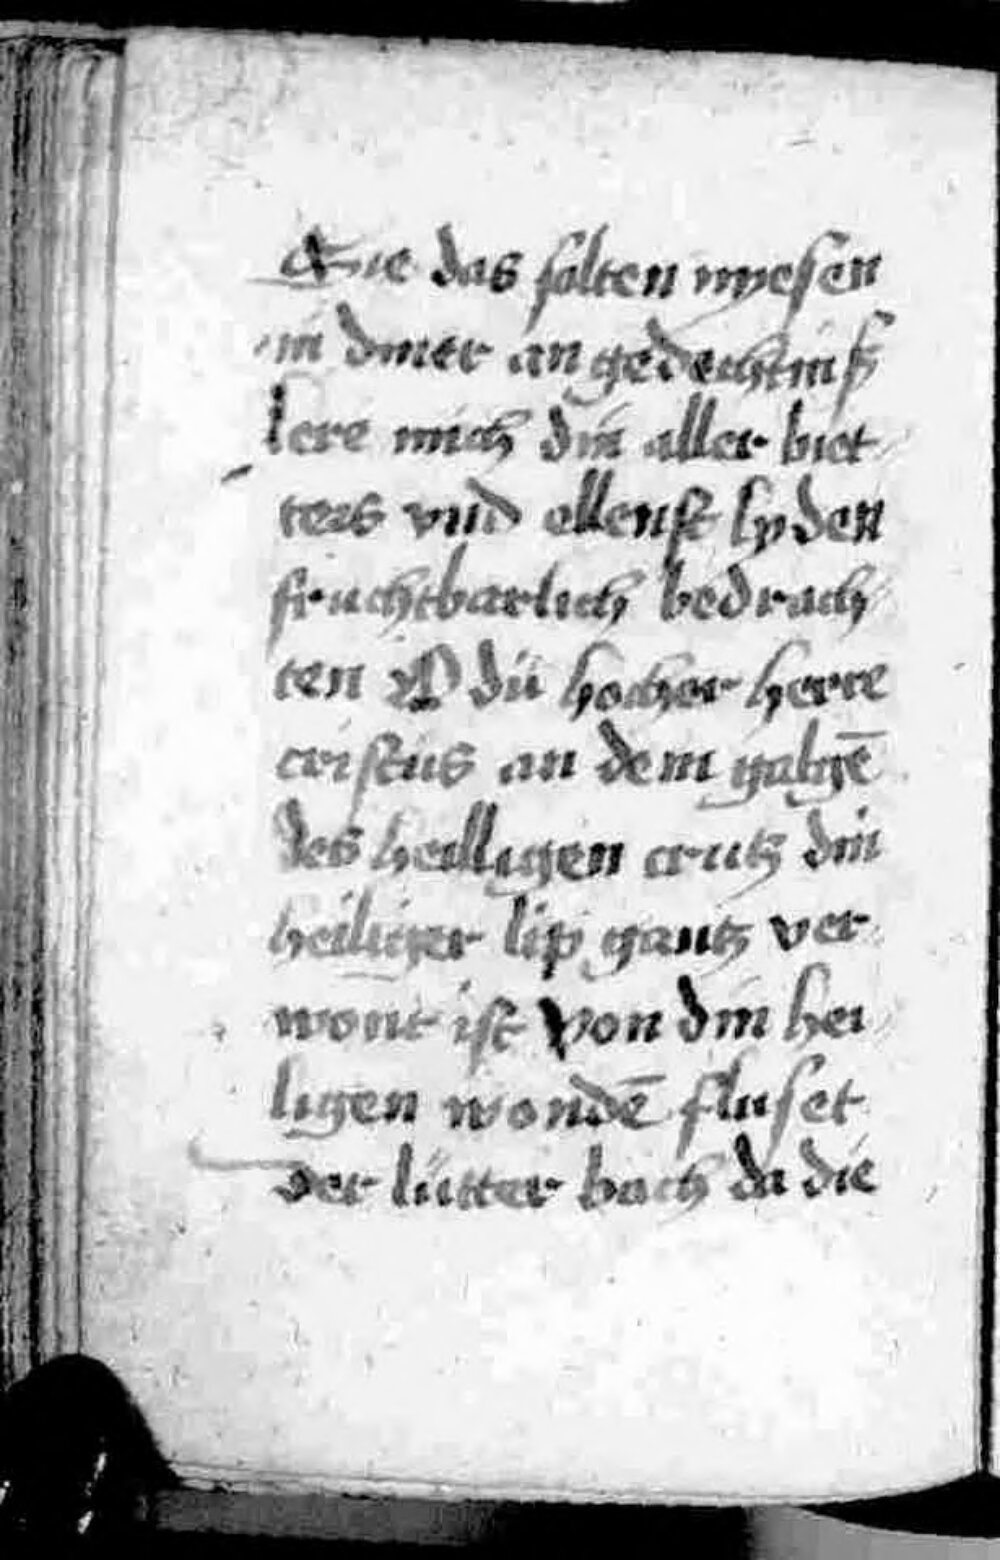 die das solten myesen
in diner an gedechtniß
lere mich din aller biet
ters vnd ellenst lyden
fruchtbarlich bedrach
ten O dü hocher herre
cristus an dem galgē
des heilligen crutz din
heiliger lip gantz ver
wont ist von din hei
ligen wondē fluset
der lütter bach da die